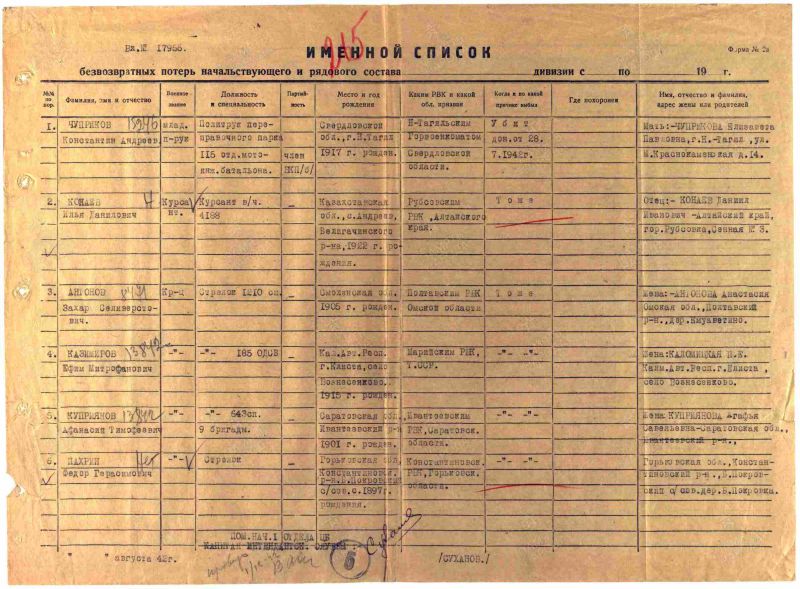 Вх.№ 17956.
215
ИМЕННОЙ СПИСОК
Форма № 2а
безвозвратных потерь начальствующего и рядового состава дивизии с по 19 г.
№№ по пор. Фамилия, имя и отчество Военное звание Должность и специальность Партийность Место и год рождения Каким РВК и какой обл. призван Когда и по какой причине выбыл Где похоронен Имя, отчество и фамилия, адрес жены или родителей
1. ЧУПРИКОВ млад. Политрук пере- Свердловской Н-Тагильским Убит Мать:-ЧУПРИКОВА Елизавета
Константин Андреев. п-рук правочного парка обл.,г.Н.Тагал Горвоенкоматом дон.от 28. Павловна,г.Н.-Тагал,ул.
115 отд.мото- член 1917 г. рожден. Свердловской 7.1942г. М.Краснокаменская д.14.
инж.батальона. ВКП/б/ области.
2. КОНАЕВ Н Курса Курсант в/ч. _ Казахстанская Рубсовским Тоже Отец:- КОНАЕВ Даниил
Илья Данилович нт. 4188 обл.,с.Андреев, РВК,Алтайского Иванович -Алтайский край,
Велигачинского края. гор.Рубсовка,Сенная № 3.
р-на,1922 г. ро-
ждения.
3. АНТОНОВ Кр-ц Стрелок 1210 сп. _ Смоленская обл. Полтавским РВК Тоже Жена:-АНТОНОВА Анастасия
Захар Селиверсто- 1905 г. рожден. Омской области Омская обл.,Полтавский
вич. р-н.,дер.
4. КАЗИМИРОВ 13842 -"- -"- 185 ОДОВ _ Кал.Авт.Респ. Марийским РВК, -"- -"- Жена:КАЛОМИЦКАЯ П.Е.
Ефим Митрофанович г.Элиста,село Т.ССР. Калм.Авт.Респ.г.Элиста,
Вознесенково. село Вознесенково.
1915 г. рожден.
5. КУПРИЯНОВ 13842 -"- -"- 643сп. _ Саратовская обл. Ивантеевским -"- -"- Жена КУПРИЯНОВА Агафья
Афанасий Тимофеевич 9 бригады. Ивантеевский р-н РВК,Саратовск. Савельевна-Саратовская обл.,
1901 г. рожден. области. Ивантеевский р-н.,
6. ПАХРИН Нет -"- Стрелок _ Горьковская обл. Константиновск. Горьковская обл.,Констан-
Федор Герасимович Константиновск. РВК,Горьковск. тиновский р-н.,Б.Покров-
р-н.Б.Покровский области. ский с/сов.дер.Б.Покровка.
с/сов.с.1897г.
рождения.
ПОМ.НАЧ.1 ОТДЕЛА ЦБ
КАПИТАН ИНТЕНДАНТСК. СЛУЖБЫ :-
" " августа 42г. 6 /СУХАНОВ./